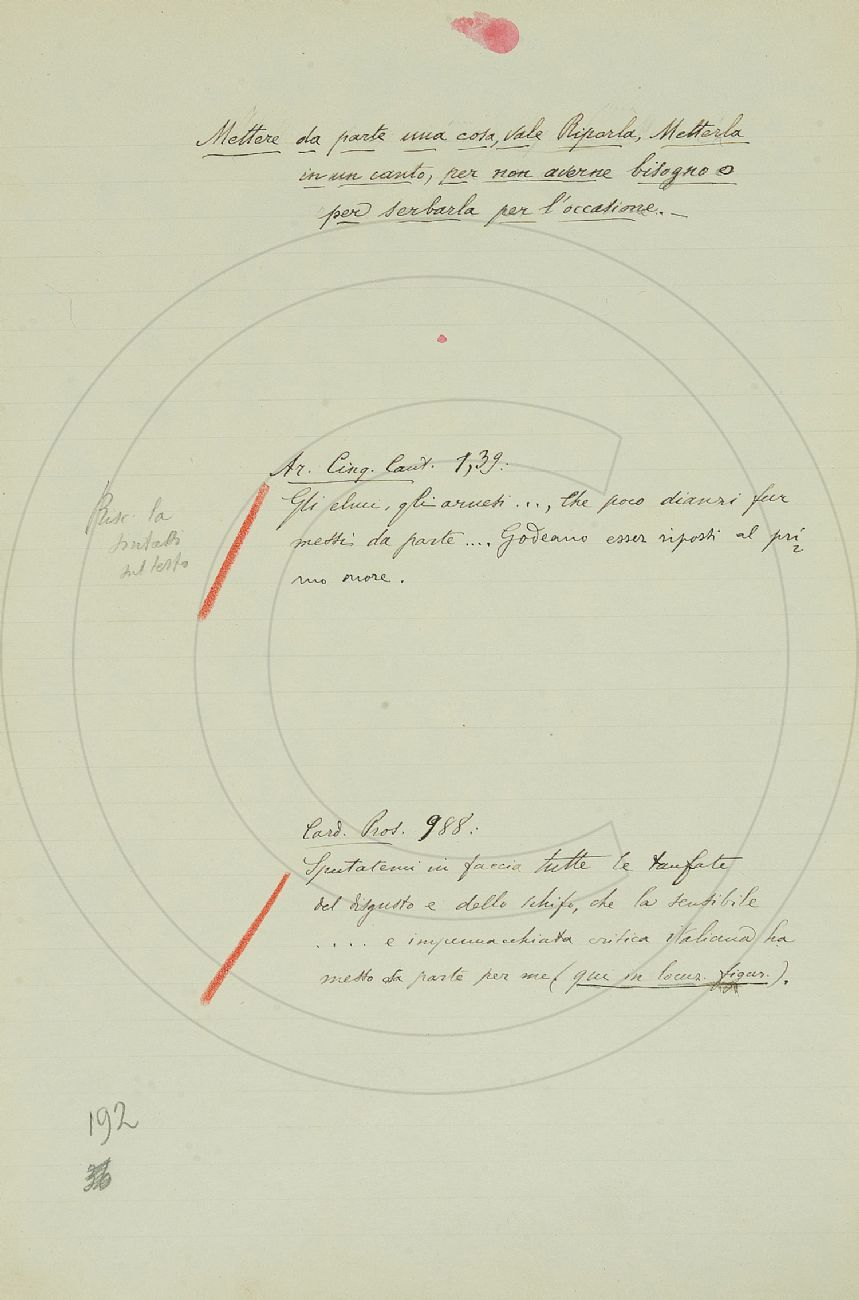 Mettere da parte una cosa, vale Riporla, Metterla
in un canto, per non averne bisogno o
per serbarla per l'occasione. –
Ar. Cinq. Cant. 1,39:
Gli elmi, gli arnesi ..., che poco dianzi fur
messi da parte .... Godeano esser riposti al pri
mo onore.
Risc. la
sul testo
Card. Pros. 988:
Sputatemi in faccia tutte le tanfate
del disgusto e dello schifo, che la sensibile
.... e impennacchiata critica italiana ha
messo da parte per me (qui in locuz. figur.).
192